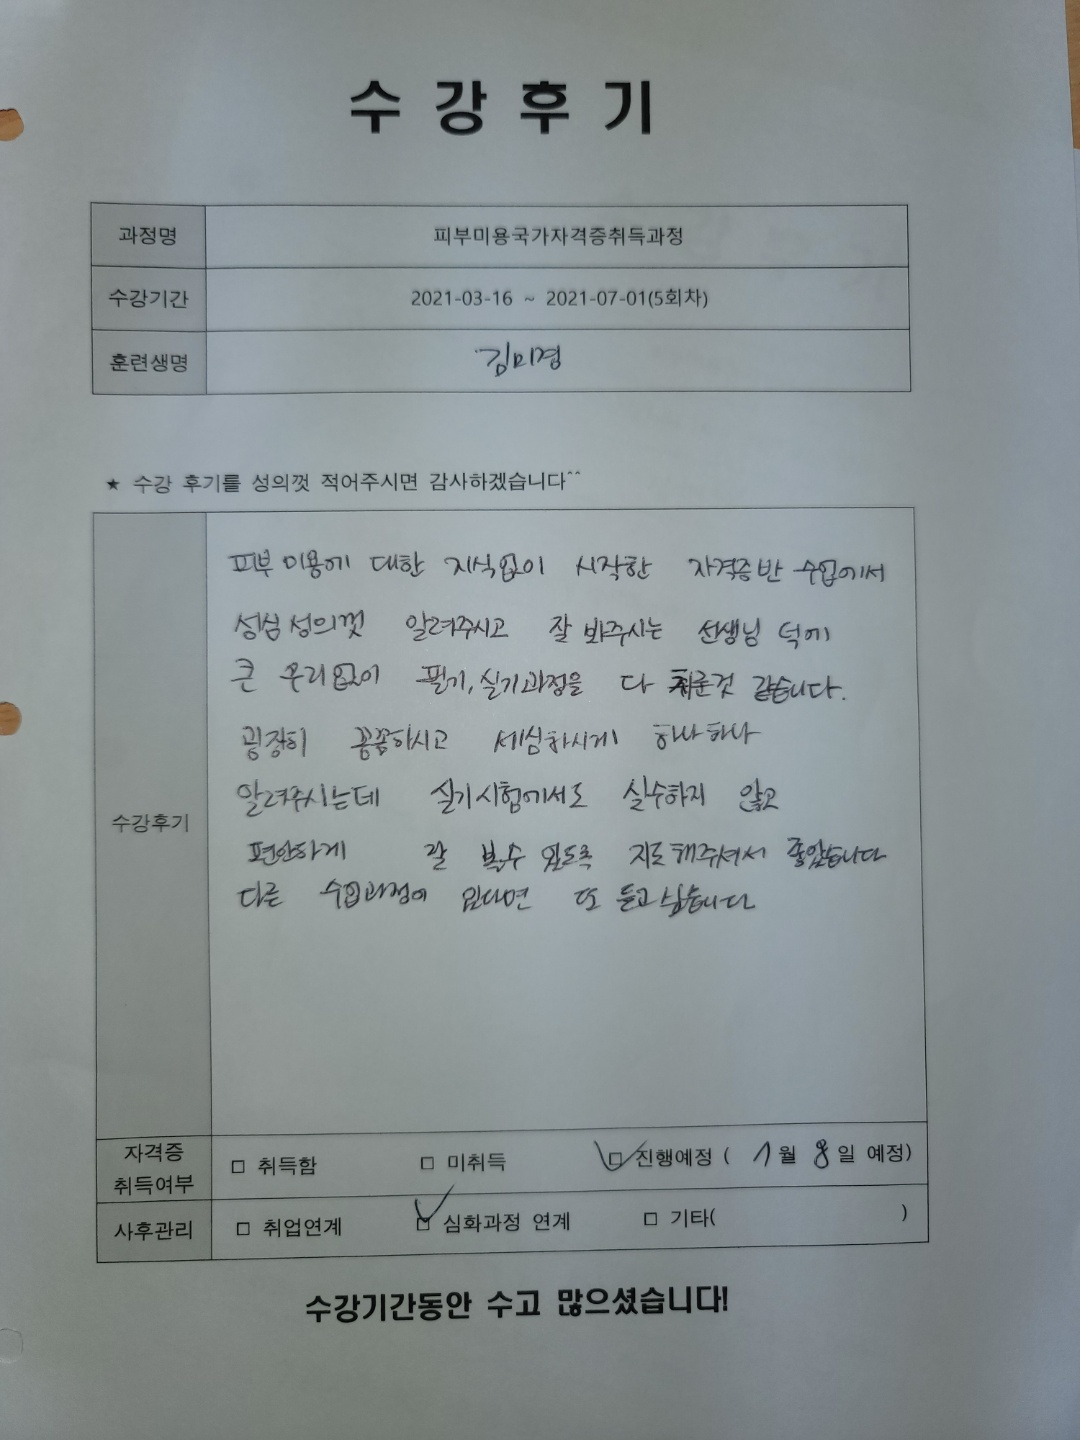 수강후기
과정명 피부미용국가자격증취득과정
수강기간 2021-03-16 ~ 2021-07-01(5회차)
훈련생명 김미경
★ 수강 후기를 성의껏 적어주시면 감사하겠습니다^^
수강후기
피부 미용에 대한 지식없이 시작한 자격증반 수업에서
성심성의껏 알려주시고 잘 봐주시는 선생님 덕에
큰 무리없이 필기, 실기과정을 다 치룬것 같습니다.
굉장히 꼼꼼하시고 세심하시게 하나하나
알려주시는데 실기시험에서도 실수하지 않고
편안하게 잘 볼수 있도록 지도해주셔서 좋았습니다
다른 수업과정이 있다면 또 듣고싶습니다
자격증 취득여부 □ 취득함 □ 미취득 ☑ 진행예정 ( 7월 8일 예정)
사후관리 □ 취업연계 ☑ 심화과정 연계 □ 기타( )
수강기간동안 수고 많으셨습니다!